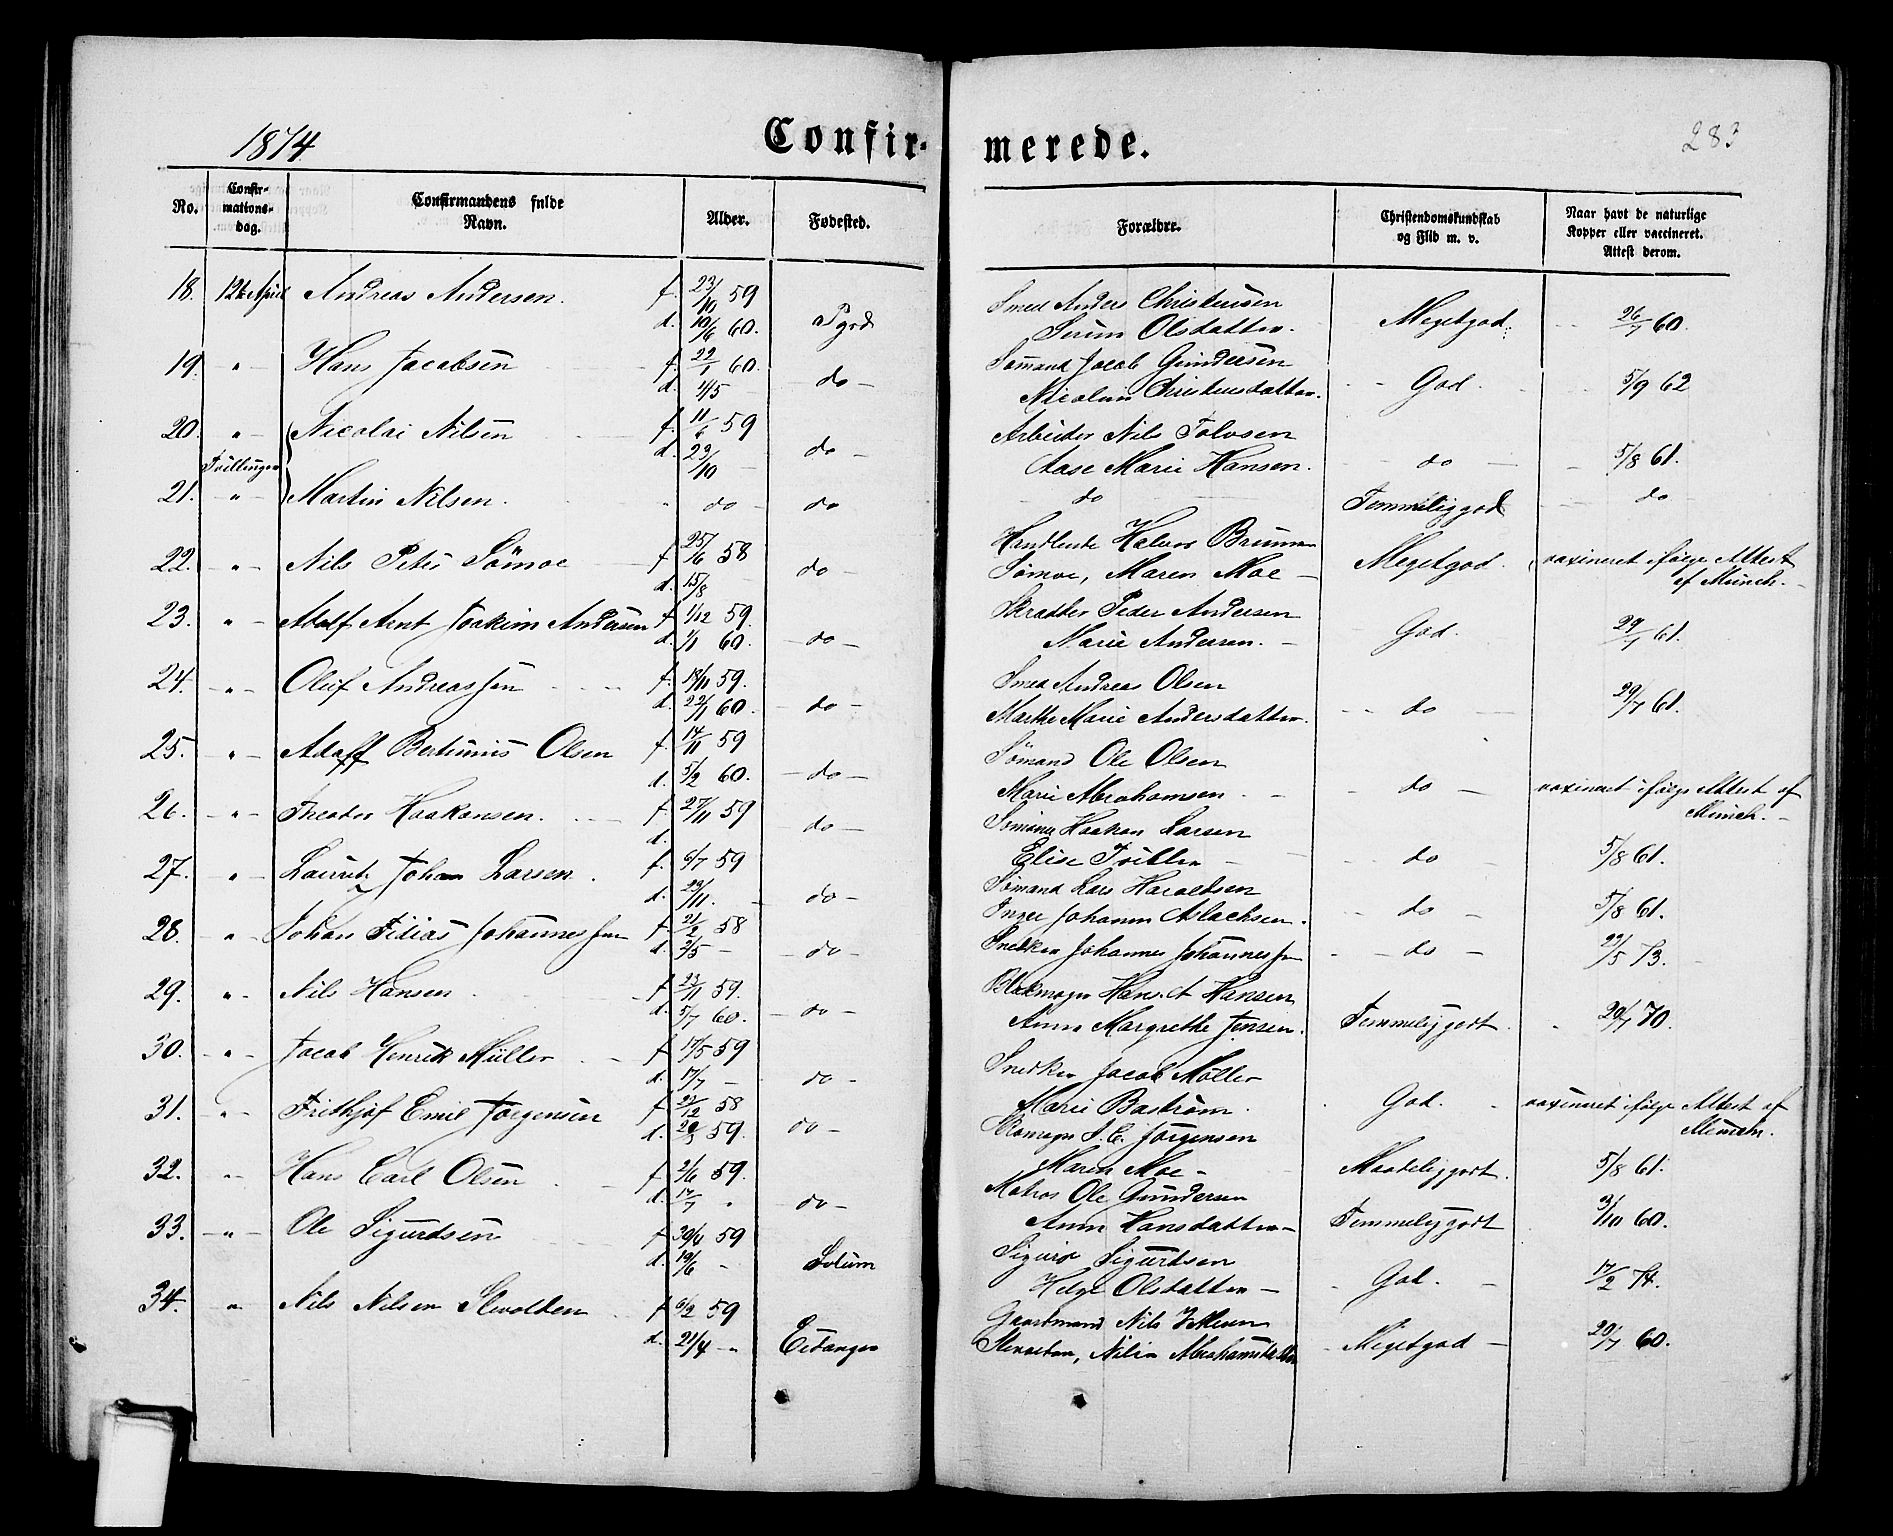 1874.
Confir-
merede.
283
No.
Confir-
mations-
dag.
Confirmandens fulde
Navn.
Alder.
Fødested.
Forældre.
Christendomskundskab
og Flid m. v.
Naar havt de naturlige
Kopper eller vaccineret.
Attest derom.
18. 12te April Andreas Andersen. f. 23/10 59 Smed Anders Christensen
d. 10/6 60. Serine Olsdatter. Megetgod. 26/7 60.
19. " Hans Jacobsen f. 22/1 60. Sømand Jacob Gundersen
d. 4/5 do Christensdatter. God. 5/9 62
20. " Nicolai Nilsen f. 11/6 59 Arbeider Nils
Tvillinger d. 23/10 do Aase Marie Hansen. do 5/8 61.
21. " Martin Nilsen. do do do Temmeliggod do
22. " Nils Peter Sømoe f. 25/6 58 Handlende Halvor Bruun
d. 15/8 do Sømoe, Maren Moe Megetgod. vaxineret ifølge Attest
af Munch.
23. " Adolf Arnt Joakim Andersen f. 1/12 59. Skrædder Peder Andersen
d. 1/1 60. do Marie Andersen. God. 29/7 61.
24. " Oluf Andreassen f. 18/11 59. Smed Andreas Olsen
d. 22/1 60. do Marthe Marie Andersdatter do 29/7 61.
25. " Adolf Bertinius Olsen f. 14/11 59 Sømand Ole Olsen
d. 5/2 60. do Marie Abrahamsen. do vaxineret ifølge Attest af
Munch.
26. " Theodor Haakonsen. f. 27/11 59 Sømand Haakon Larsen
d. do Elise do 5/8 61.
27. " Laurits Johan Larsen. f. 6/7 59 Sømand Lars Haraldsen
d. 22/11. do Inger Johanne Aslachsen. do 5/8 61.
28. " Johan Johannessen f. 21/2 58
d. 2/5 do Snedker Johannes Johannessen do 22/5 73.
29. " Nils Hansen f. 23/11 59. Hans A Hansen
d. 5/7 60. do Anne Margrethe Jensen. Temmeliggodt. 20/7 70.
30. " Jacob Henrik Müller f. 17/5 59 Snedker Jacob Møller
d. 17/7 do Marie Bastrøm. God. vaxineret ifølge Attest af
Munch.
31. " Frithjof Emil Jørgensen f. 22/12 58
d. 20/3 59. do Jørgensen
Maren Moe Maadeliggodt. 5/8 61.
32. " Hans Carl Olsen f. 2/6 59. Matros Ole Gundersen
d. 17/7 " do Anne Hansdatter Temmeliggodt 3/10 60.
33. " Ole Sigurdsen f. 30/4 59 Sigurd Sigurdsen
d. 19/6 Solum Helge Olsdatter God. 17/2 74.
34. " Nils Nilsen f. 6/2 59 Gaardmand Nils
d. 21/4 " Eidanger Megetgod 20/7 60.